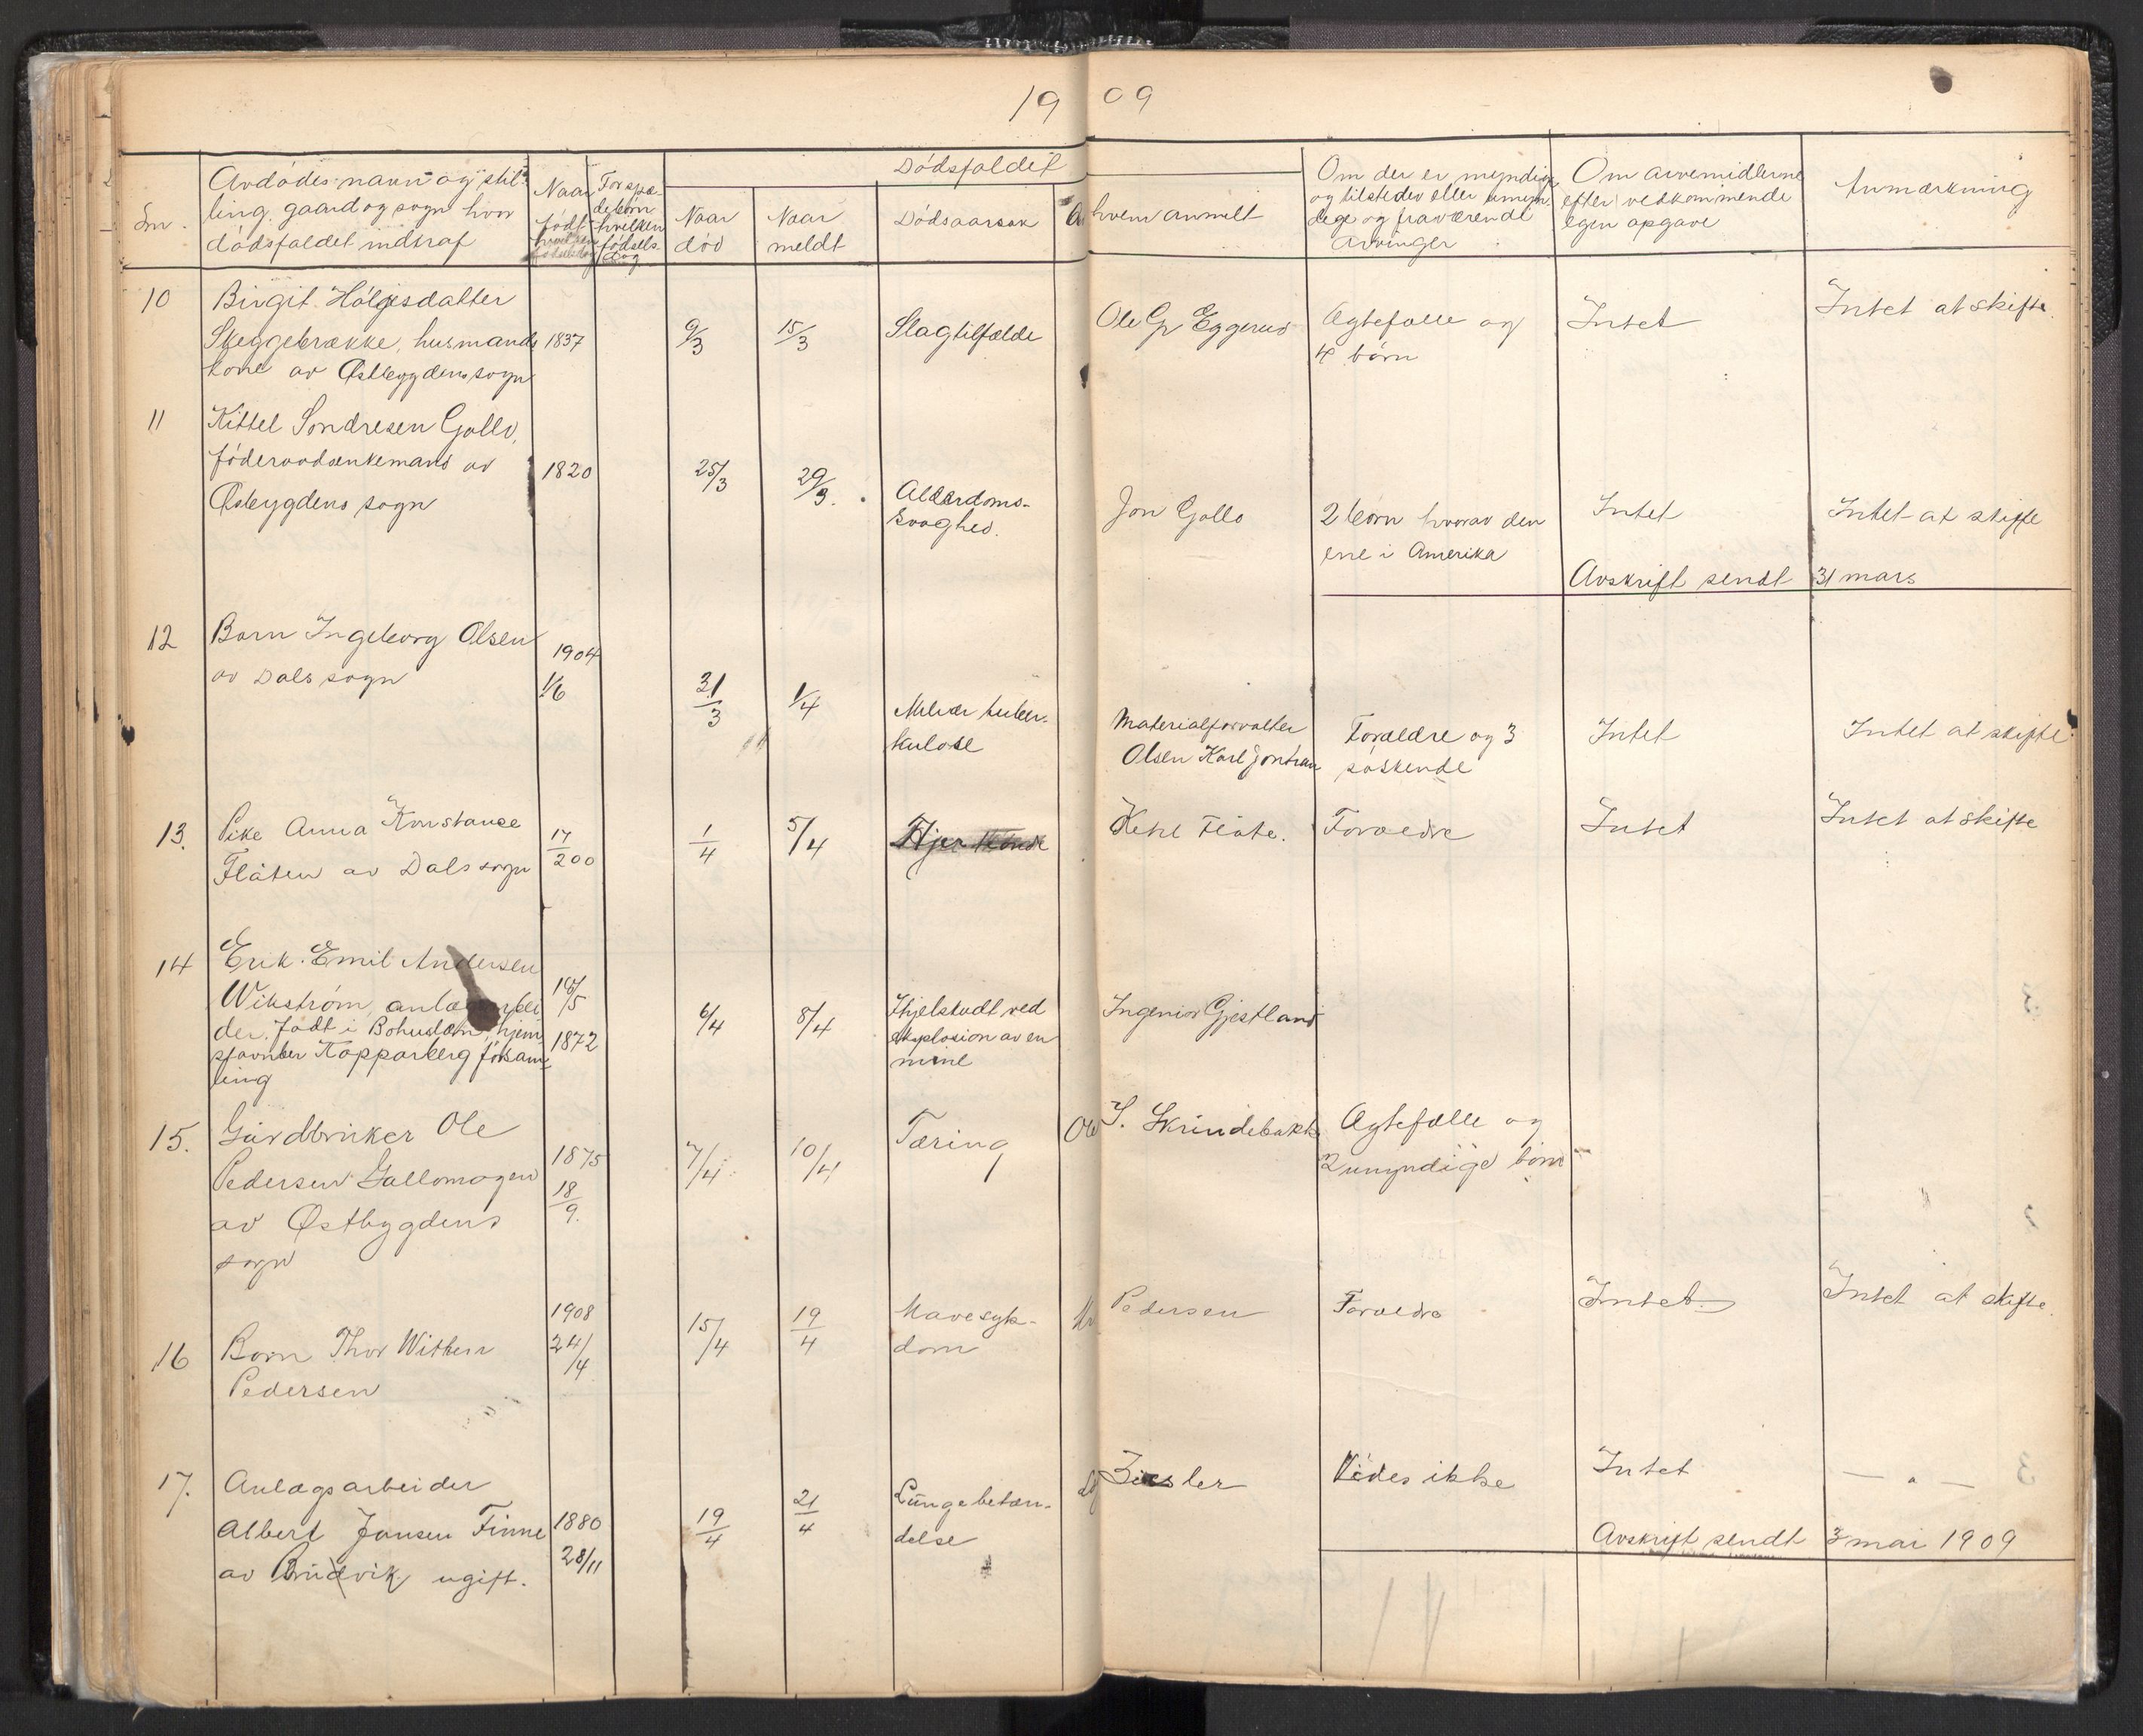 1909
Dødsfaldet
Lnr.
Avdødes navn og stil-
ling, gaard og sogn hvor
dødsfaldet indtraf
Naar
født
For spæ-
debørn
hvilken
fødsels-
dag
Naar
død
Naar
meldt
Dødsaarsak
Av
hvem anmelt
Om der er myndige
og tilstedev eller umyn-
dige og fraværende
arvinger
Om arvemidlerne
efter vedkommende
egen opgave
Anmærkning
10
Birgit Hølgisdatter
Skeggebrække, husmands
kone av Østbygdens sogn
1837
9/3
15/3
Slagtilfælde
Ole Gr Eggerud
Ægtefælle og
4 børn
Intet
Intet at skifte.
11
Kittel Sondresen Gollo,
føderaadsenkemand av
Østbygdens sogn
1820
25/3
29/3.
Alderdoms-
svaghed.
Jon Gollo
2 børn hvorav den
ene i Amerika
Intet
Intet at skifte
Avskrift sendt 31 mars
12
Barn Ingeborg Olsen
av Dals sogn
1904
1/6
31/3
1/4
Miliær tuber-
kulose
Materialforvalter
Olsen Karl Jonsran
Forældre og 3
søskende
Intet
Intet at skifte
13.
Pike Anna Konstanse
Flåten av Dals sogn
17/200
1/4
5/4
Ketil Flåte.
Forældre
Intet
Intet at skifte
14
Erik Emil Andersen
Wikström,
der. Født i Bohuslän, hjem-
stavnber Kopparberg försam-
ling
/5
1872
6/4
8/4
Ihjelslaadt ved
eksplosion av en
mine
Ingeniør Gjestland
15.
Gårdbruker Ole
Pedersen Gallomogen
av Østbygdens
sogn
1875
18/9.
7/4
10/4
Tæring
Ole S. Skrindebakke
Ægtefælle og
2 umyndige børn
16
Barn Thor Witken
Pedersen
1908
24/4
15/4
19/4
Mavesyk-
dom
Pedersen
Forældre
Intet
Intet at skifte.
17.
Anlægsarbeider
Albert Jansen Finne
av ugift.
1880
28/11
19/4
21/4
Lungebetæn-
delse
Ziesler
Vides ikke
Intet
— " —
Avskrift sendt 3 mai 1909